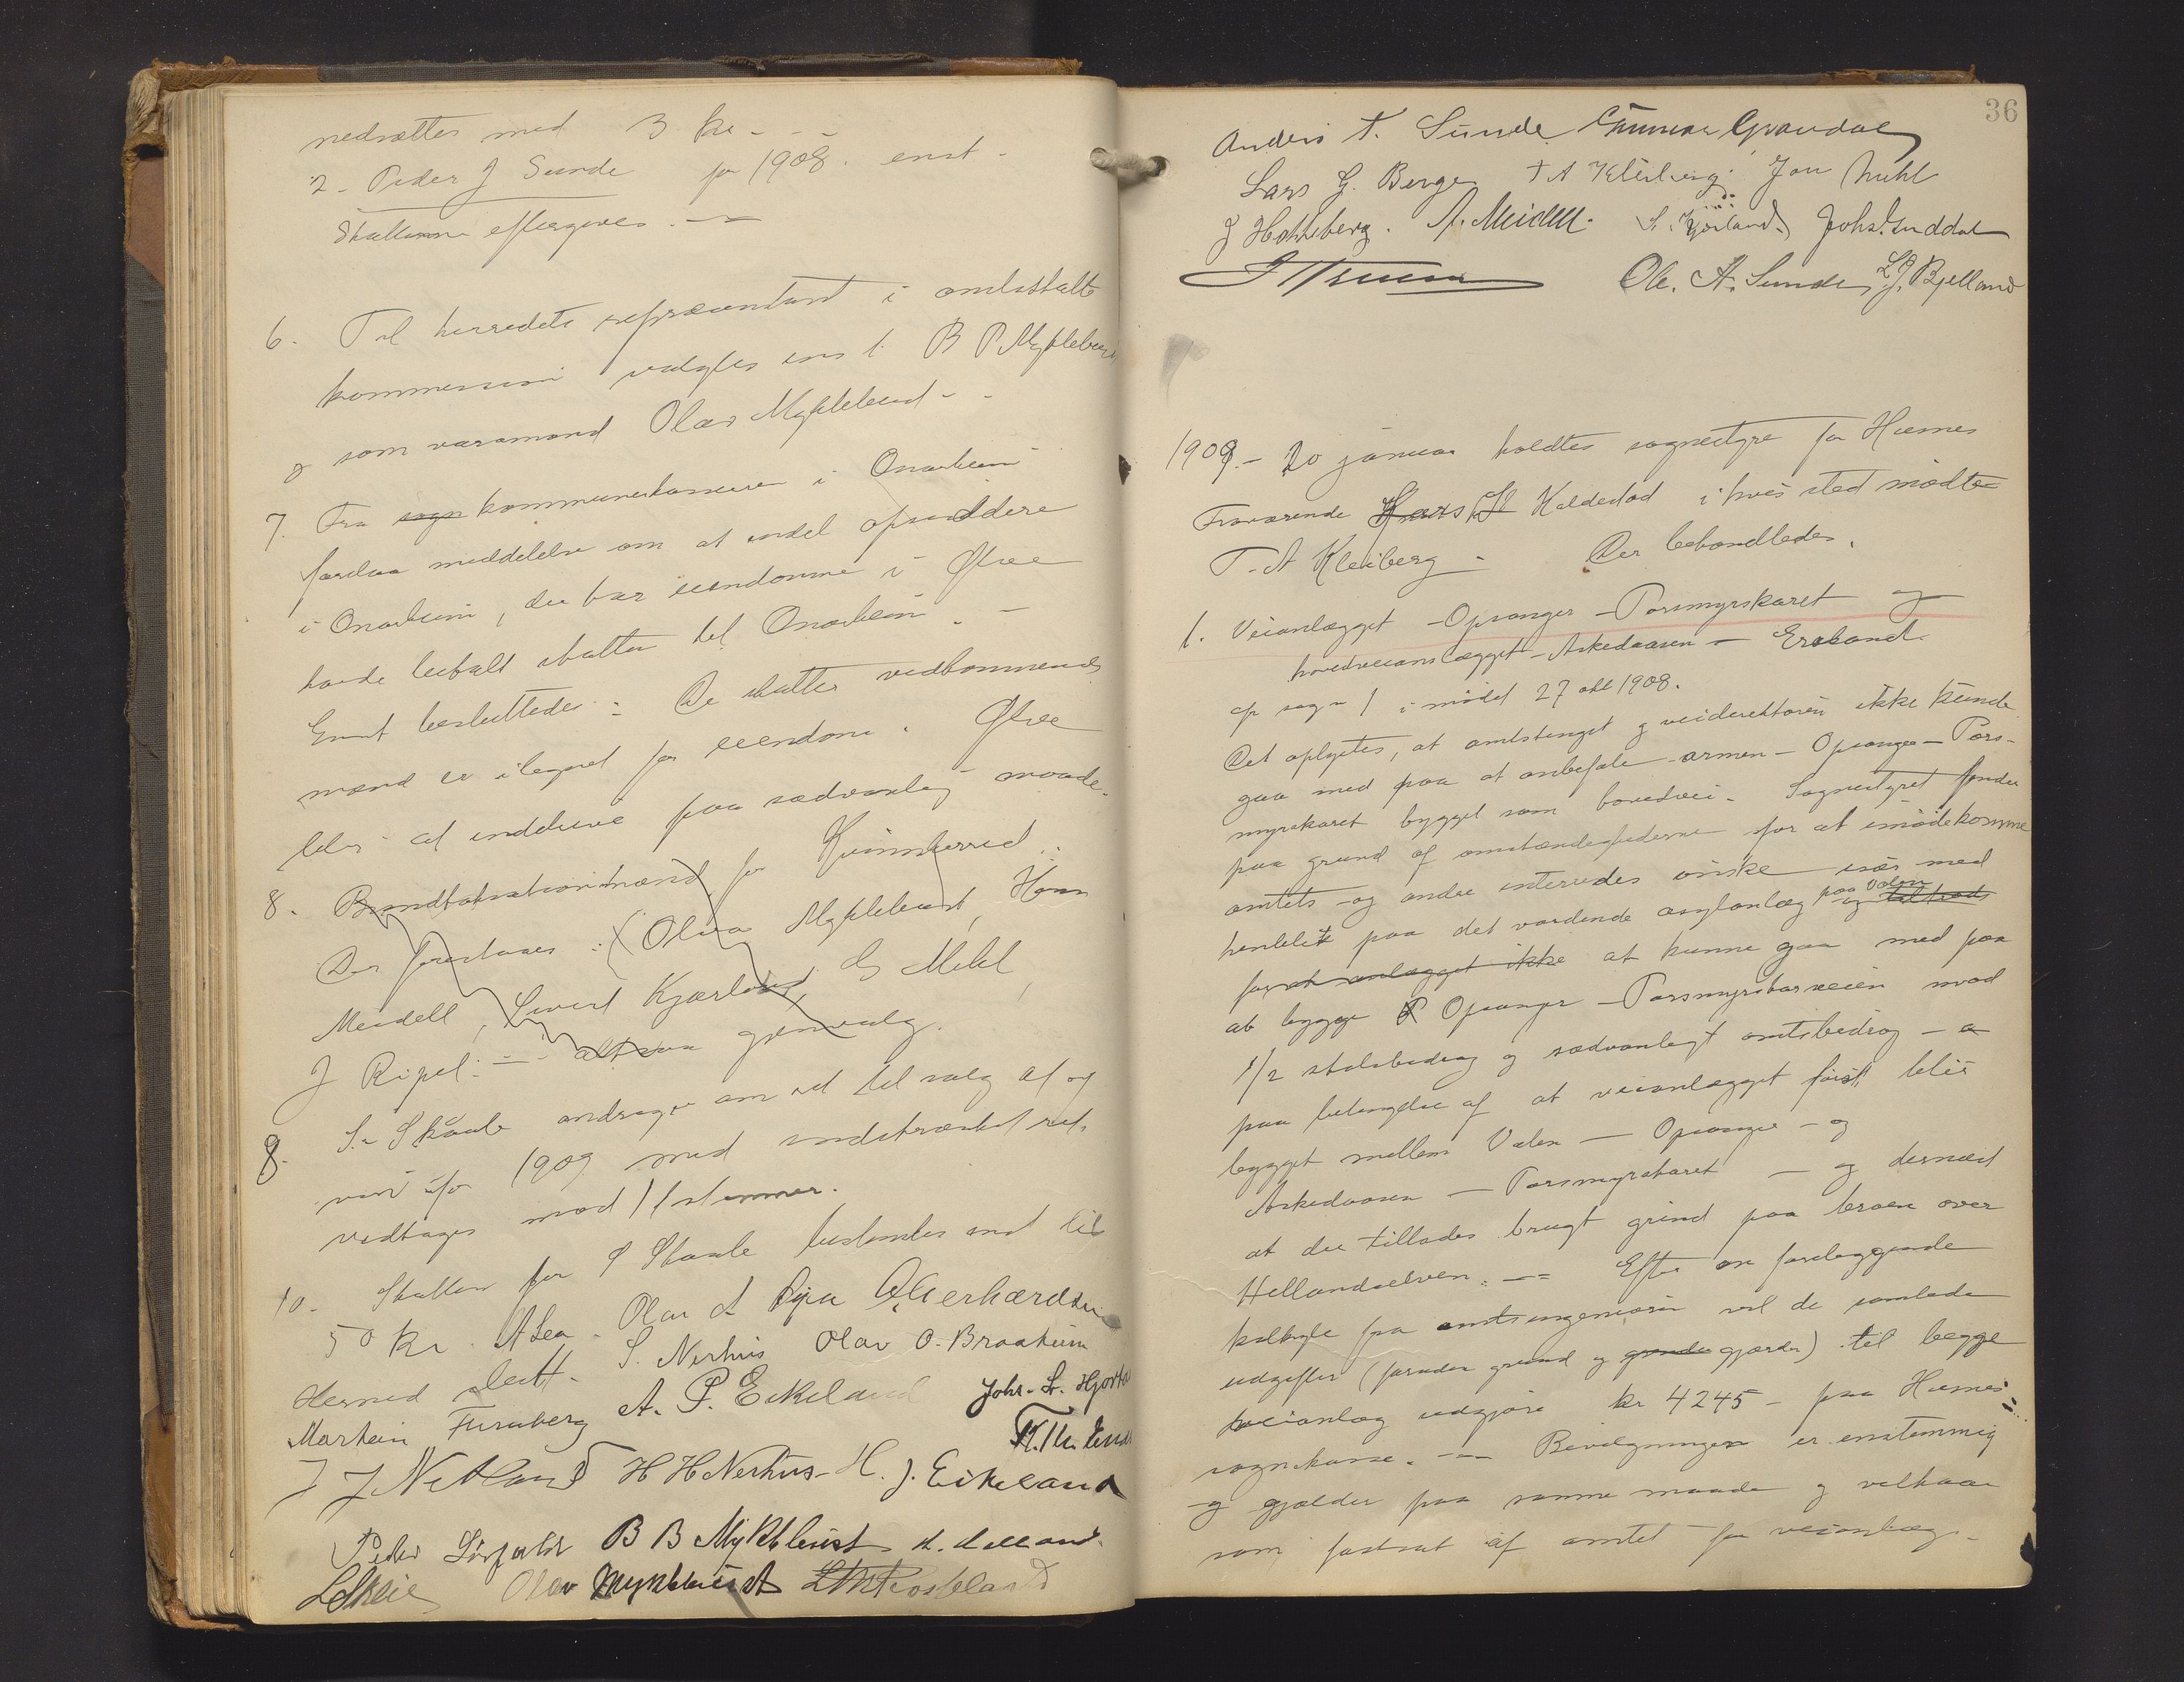 nedsættes med 3 kr - - -
2 - Peder J Sunde for 1908. enst -
Skatterne eftergives. - -
6. Til herredets repræsentant i amtsskatte
kommission valgtes enst. B P Myklebust
og som varamand Olav Myklebust - -
7. Fra sogn kommunekasseren i Onarheim
forelaa meddelelse om at endel opsiddere
i Onarheim, der har eiendomme i Ølve
havde betalt skatten til Onarheim. -
Enst besluttedes: De skatter vedkommende
mænd er ilignet for eiendom i Ølve
blir at inddrive paa sædvanlig maade.
8. Brandtakstationsmænd for Kvinnherred.
Der foreslaaes: (Olva Myklebust, Hans
Meidell, Sivert Kjærland, G Mehl,
J Ripel: - - altsaa gjenvalg.
8. S. Skaale andrager om ret til salg af og
vin for 1909 med indskrænket ret.
vedtages mod 1 stemmer.
10. Skatten for S Skaale bestemtes enst til
50 kr. ALea. Olav A Øyra O Gerhardsen
Hermed slutt. S. Nerhus Olav O. Braaheim
Martein Furuberg A. P. Eikeland Johs. L. Hjorta
J J Netland H H Nerhus - H. J. Eikeland
Peder B B Myklebust
LSkeie Olav Myklebust
36
Anders T. Sunde Gunnar Grandal
Lars G. Berge T A Kleiberg. Jon Mehl
J Hatteberg. A. Meidell. S. Kjærland Johs. Guddal
Ole. A. Sunde, L. J. Bjelland
1909. - 20 januar holdtes sognestyre for Husnes
Fraværende Lars H Haldestad i hvis sted mødte
T. A Kleiberg - Der behandledes.
1. Veianlægget - Opsanger - Porsmyrskaret og
hovedveianlægget - Askedaasen - Ersland.
cfr sag 1 i mødet 27 okt 1908.
Det oplystes, at amtstinget og veidirektøren ikke kunde
gaa med paa at anbefale armen - Opsanger - Pors-
myrskaret bygget som hovedvei. Sognestyret finder
paa grund af omstændighederne for at imødekomme
amtets - og andre interredes ønske især med
henblik paa det vordende asylanlæg paa Valen
for at anlægget ikke at kunne gaa med paa
at bygge P Opsanger - Porsmyrskarveien mod
1/2 statsbidrag og sædvanligt amtsbidrag - a
paa betingelse af at veianlægget først blir
bygget mellem Valen - Opsanger - og
Askedaasen - Porsmyrskaret - og dernæst
at der tillades brugt grind paa broen over
Hellandselven. - - Efter en foreliggende
kalkyle fra amtsingeniøren vil de samlede
udgifter (foruden grund og grinde gjærder) til begge
veianlæg udgjøre kr 4245 - paa Husnes
sognekasse. - - Bevilgningen er enstemmig
og gjælder paa samme maade og vilkaar
som fastsat af amtet for veianlæg -